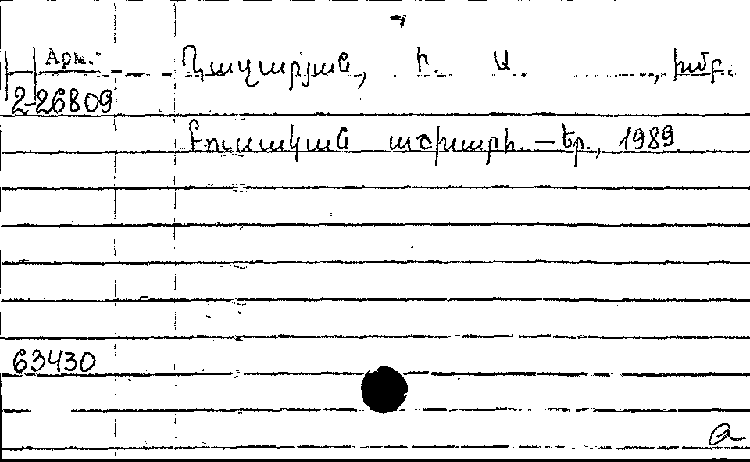 Арм.
Ղազարյան, Ի. Ա. , խմբ.
2-26809
Բուսական աշխարհ. — Եր., 1989
63430